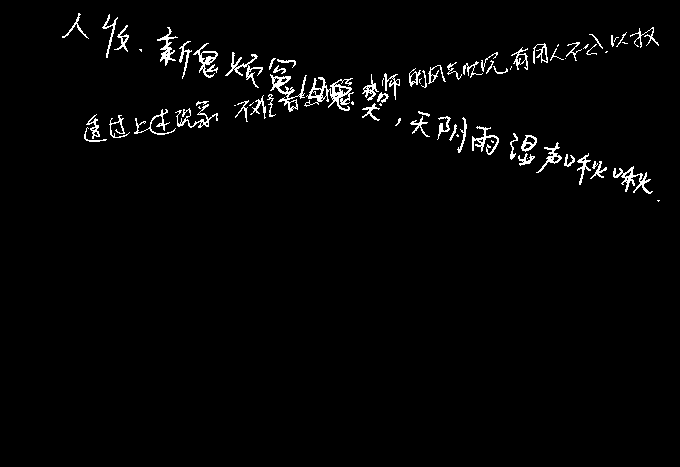 人收.新鬼烦冤旧鬼哭,天阴雨湿声啾啾.
透过上述现象.不难看出师的风气状况.有用人不公.以权